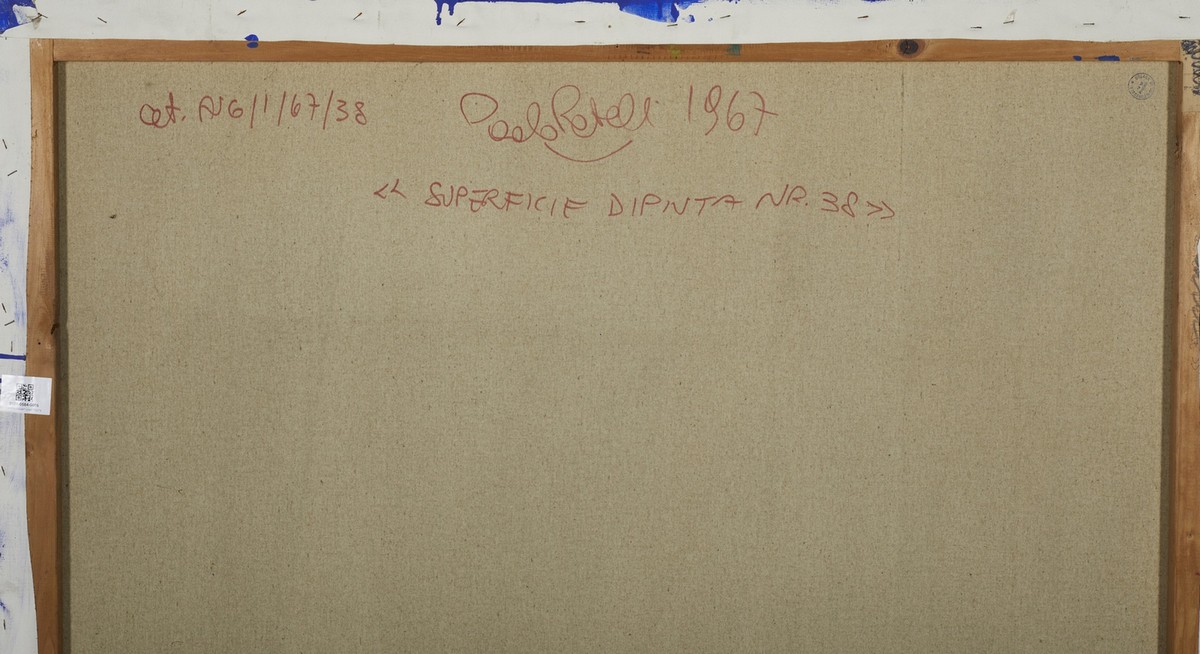 cat. NG/1/67/38
Paolo Patelli 1967
« SUPERFICIE DIPINTA NR. 38 »